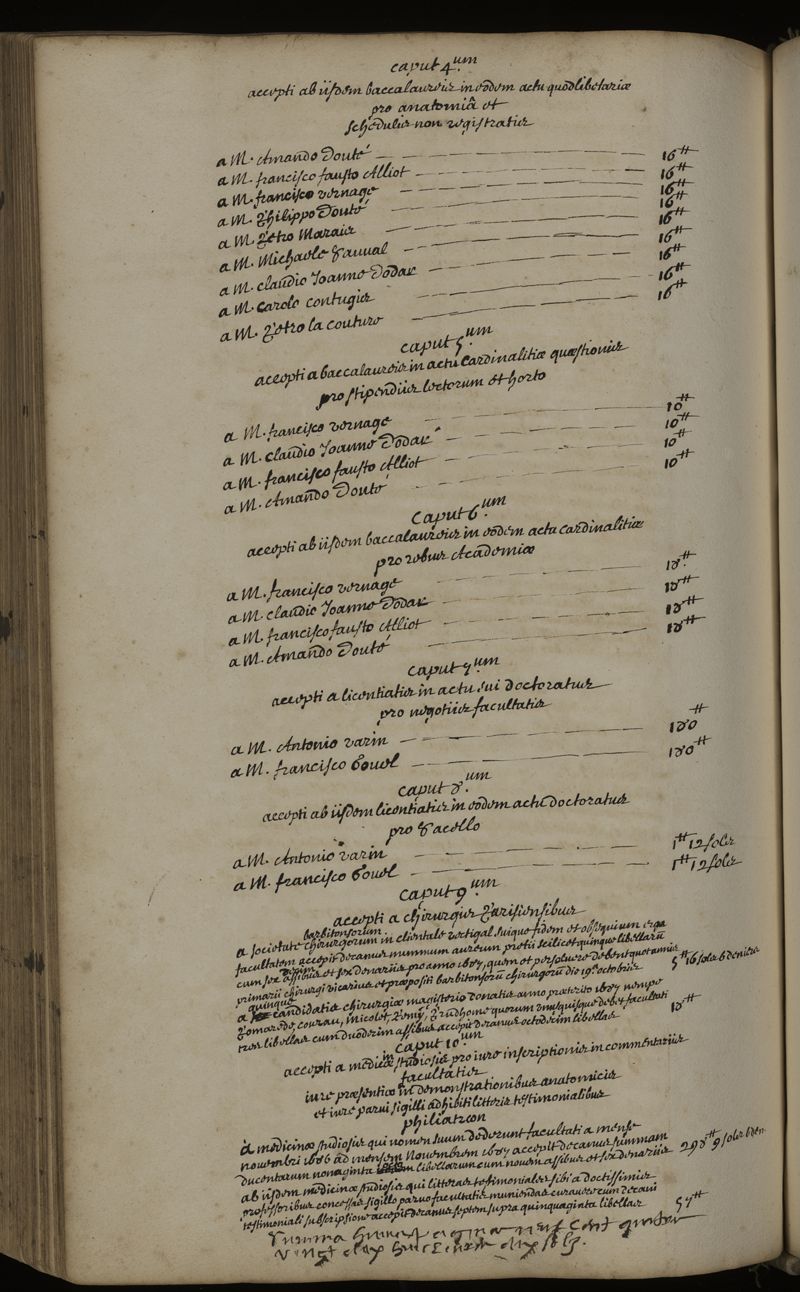 caput 4.um
accepti ab iisdem baccalaureis in eodem actu quodlibetariae
pro anatomiâ et
schedulis non registratis
a M. Amando Douté 16tt
a M. francisco fausto Alliot 16tt
a M. francisco vernage 16tt
a M. Philippo Douté 16tt
a M. Petro Marais 16tt
a M. Michaele 16tt
a M. claudio Joanne Dodar 16tt
a M. Carolo contugis 16tt
a M. Petro la couture 16tt
caput 5.um
accepti a baccalaureis in actu Cardinalitiae quaestionis
pro stipendiis lectorum et horto
a M. francisco vernage 10tt
a M. claudio Joanne Dodar 10tt
a M. francisco fausto Alliot 10tt
a M. Amando Douté 10tt
Caput 6.um
accepti ab iisdem baccalaureis in eodem actu cardinalitiae
pro rebus Academiae
a M. francisco vernage 18tt
a M. claudio Joanne Dodar 18tt
a M. francisco fausto Alliot 18tt
a M. Amando Douté 18tt
caput 7.um
accepti a licentiatis in actu sui doctoratus
pro negotiis facultatis
a M. Antonio varin 180tt
a M. francisco 180tt
caput 8.um
accepti ab iisdem licentiatis in eodem actu doctoratus
pro sacello
a M. Antonio varin 1tt 12 sols
a M. francisco 1tt 12 sols
caput 9.um
accepti a chirurgis Parisiensibus
barbitonsorum
a societate chirurgorum in clientelae vectigal suique fidem et obsequium erga
facultatem accepit decanus nummum aureum pretii scilicet quinque libellarum
cum sex assibus et sex denariis pro anno 1687, quem et persolvere debent quotannis
primarii chirurgi vicarius et praepositi barbitonsorum chirurgorum die 19a octobris 5tt 16 sols 6 deniers
quinque
a candidatis chirurgiae magisterio donatis anno praeterito 1687 nempe
nicolet, Prudhome quorum unusquisque debet facultati
tres libellas cum duodecim assibus accepit decanus octodecim libellas 18tt
caput 10.um
accepti a medicinae studiosis pro iure inscriptionis in commentariis
facultatis
iure praesentiae in demonstrationibus anatomicis
et iure parvi sigilli adhibiti litteris testimonialibus
philiatrωn
a medicinae studiosis qui nomen suum dederunt facultati a mense
novembri 1686 ad mensem Novembrem 1687 accepit decanus summam
ducentarum nonaginta libellarum cum novem assibus et sex denariis 298tt 9 sols 6 den
ab iisdem medicinae studiosis qui litteras testimoniales sibi a doctissimis
professoribus concessas sigillo parvo facultatis muniendas curaverunt decani
testimoniali subscriptione accepit decanus septem supra quinquaginta libellas 57tt
Summa neuf cent quatre
vingt